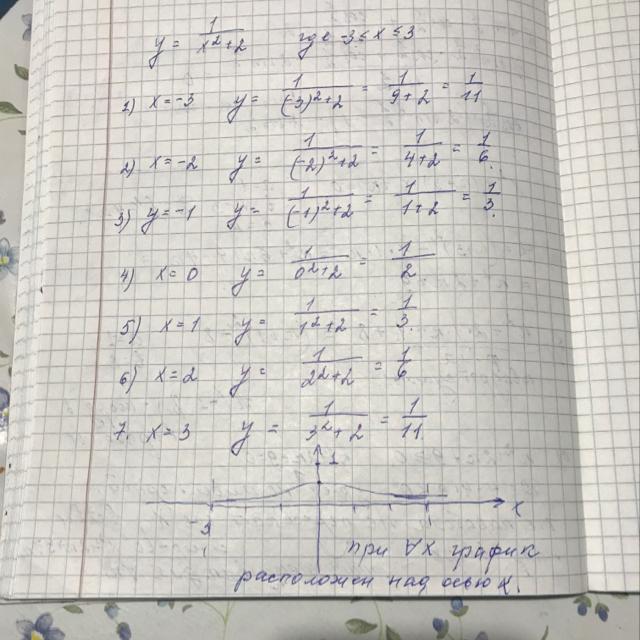 y = 1/(x²+2) где -3 ≤ x ≤ 3
1) x = -3 y = 1/((-3)²+2) = 1/(9+2) = 1/11
2) x = -2 y = 1/((-2)²+2) = 1/(4+2) = 1/6.
3) y = -1 y = 1/((-1)²+2) = 1/(1+2) = 1/3.
4) x = 0 y = 1/(0²+2) = 1/2
5) x = 1 y = 1/(1²+2) = 1/3.
6) x = 2 y = 1/(2²+2) = 1/6
7. x = 3 y = 1/(3²+2) = 1/11
1
x
-3
при ∀x график
расположен над осью x.